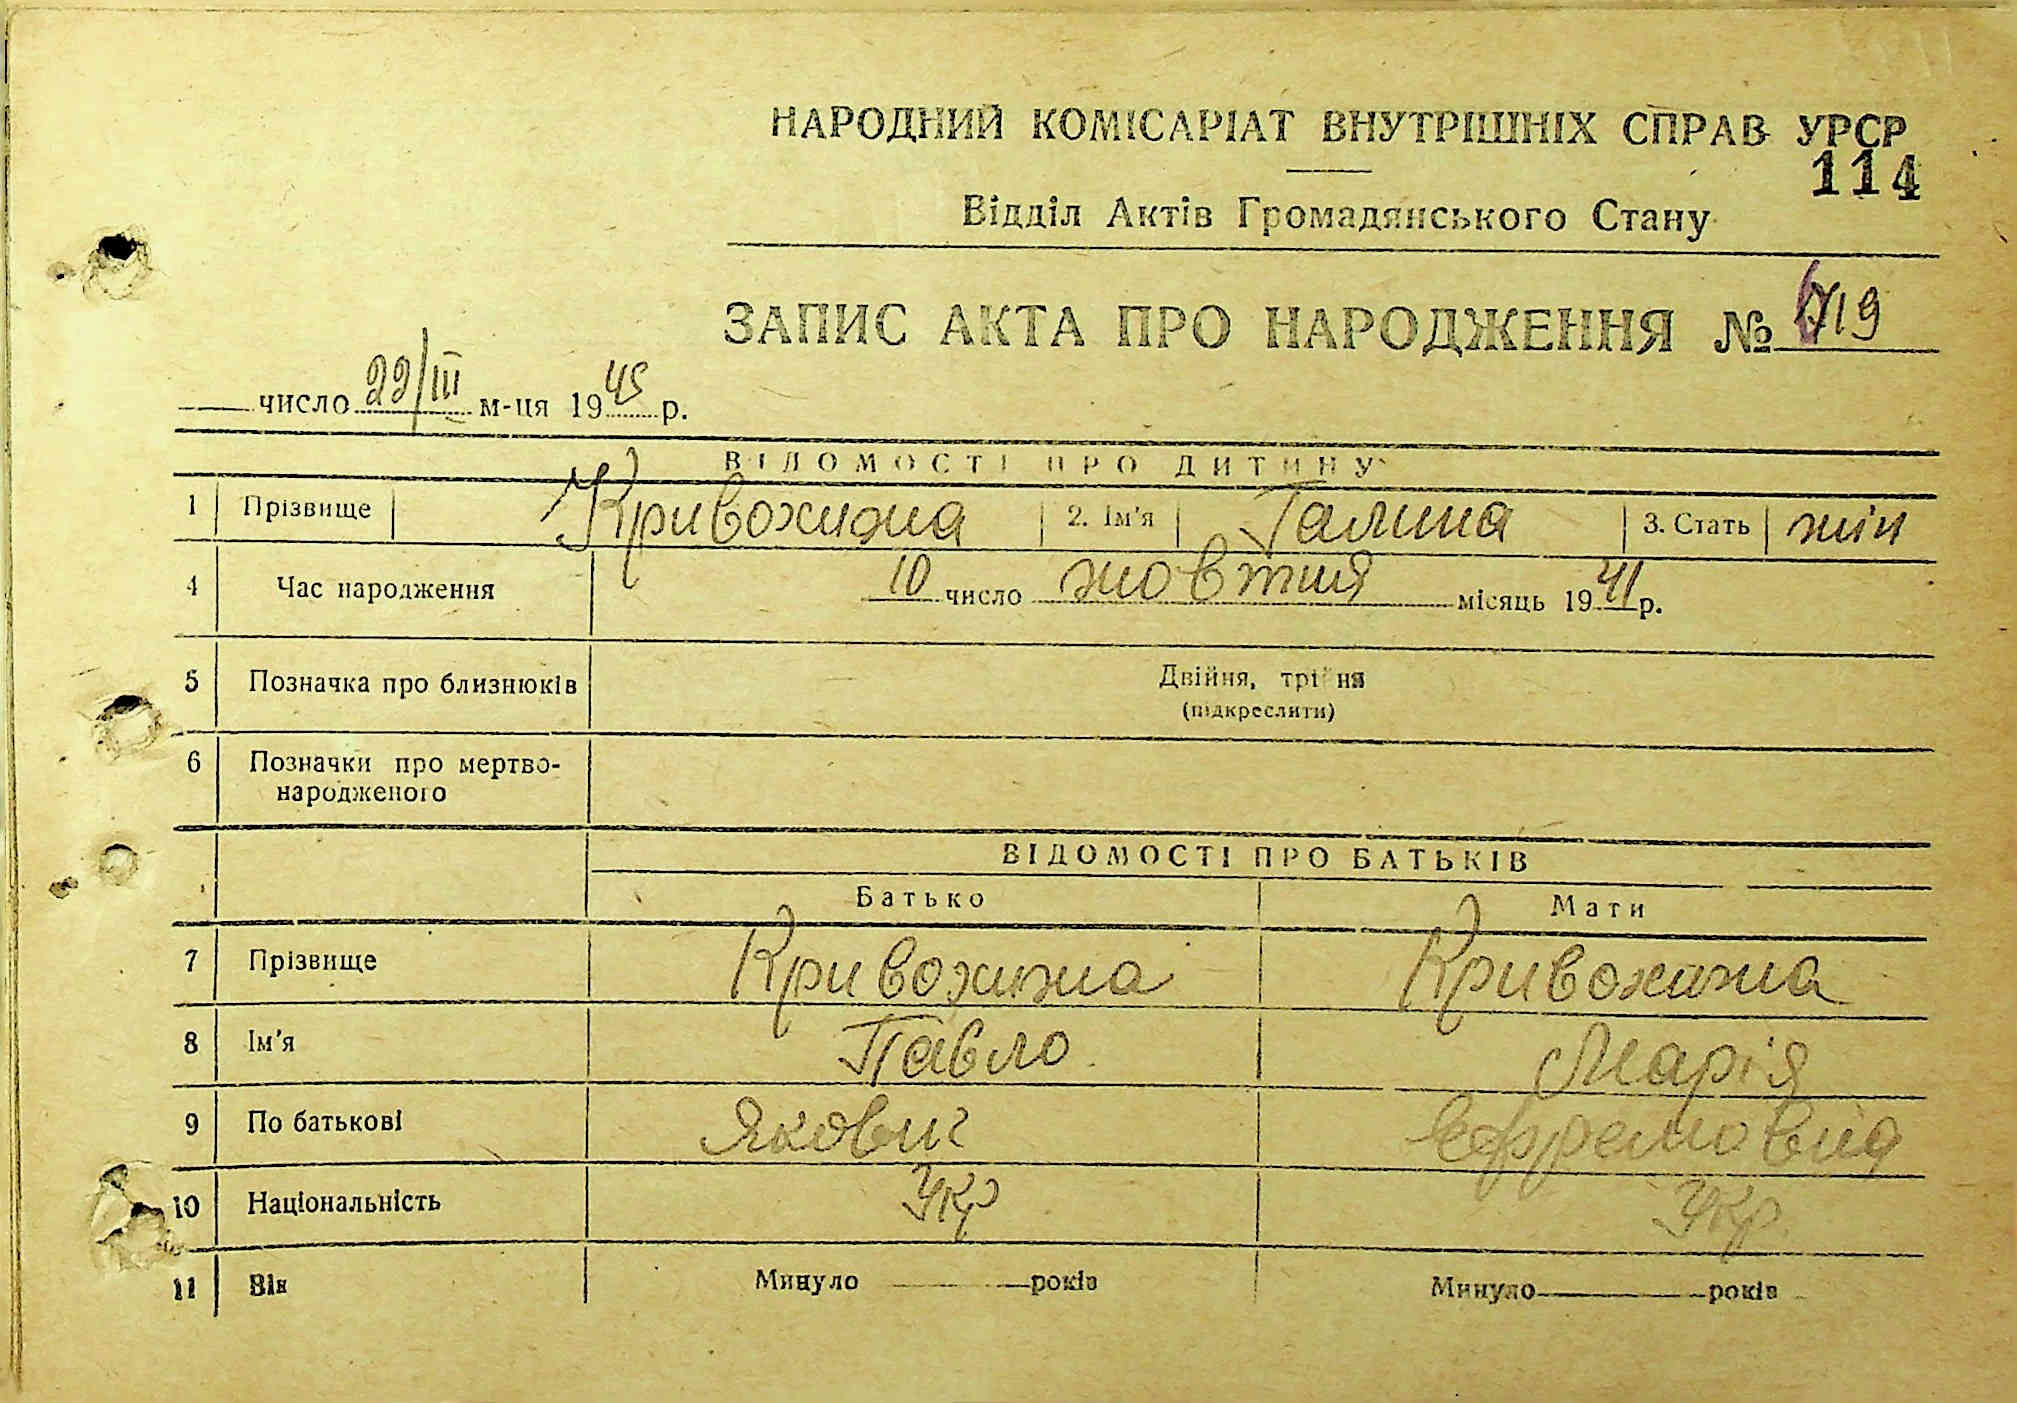 НАРОДНИЙ КОМІСАРІАТ ВНУТРІШНІХ СПРАВ УРСР
114
Відділ Актів Громадянського Стану
ЗАПИС АКТА ПРО НАРОДЖЕННЯ № 19
число 22/III м-ця 1945 р.
ВІДОМОСТІ ПРО ДИТИНУ
1 Прізвище Кривохижа 2. Ім'я Галина 3. Стать жін
4 Час народження 10 число жовтня місяць 1941 р.
5 Позначка про близнюків Двійня, трійня
(підкреслити)
6 Позначки про мертво-
народженого
ВІДОМОСТІ ПРО БАТЬКІВ
Батько Мати
7 Прізвище Кривохижа Кривохижа
8 Ім'я Павло Марія
9 По батькові Якович Ефремовна
10 Національність Укр Укр.
11 Вік Минуло років Минуло років